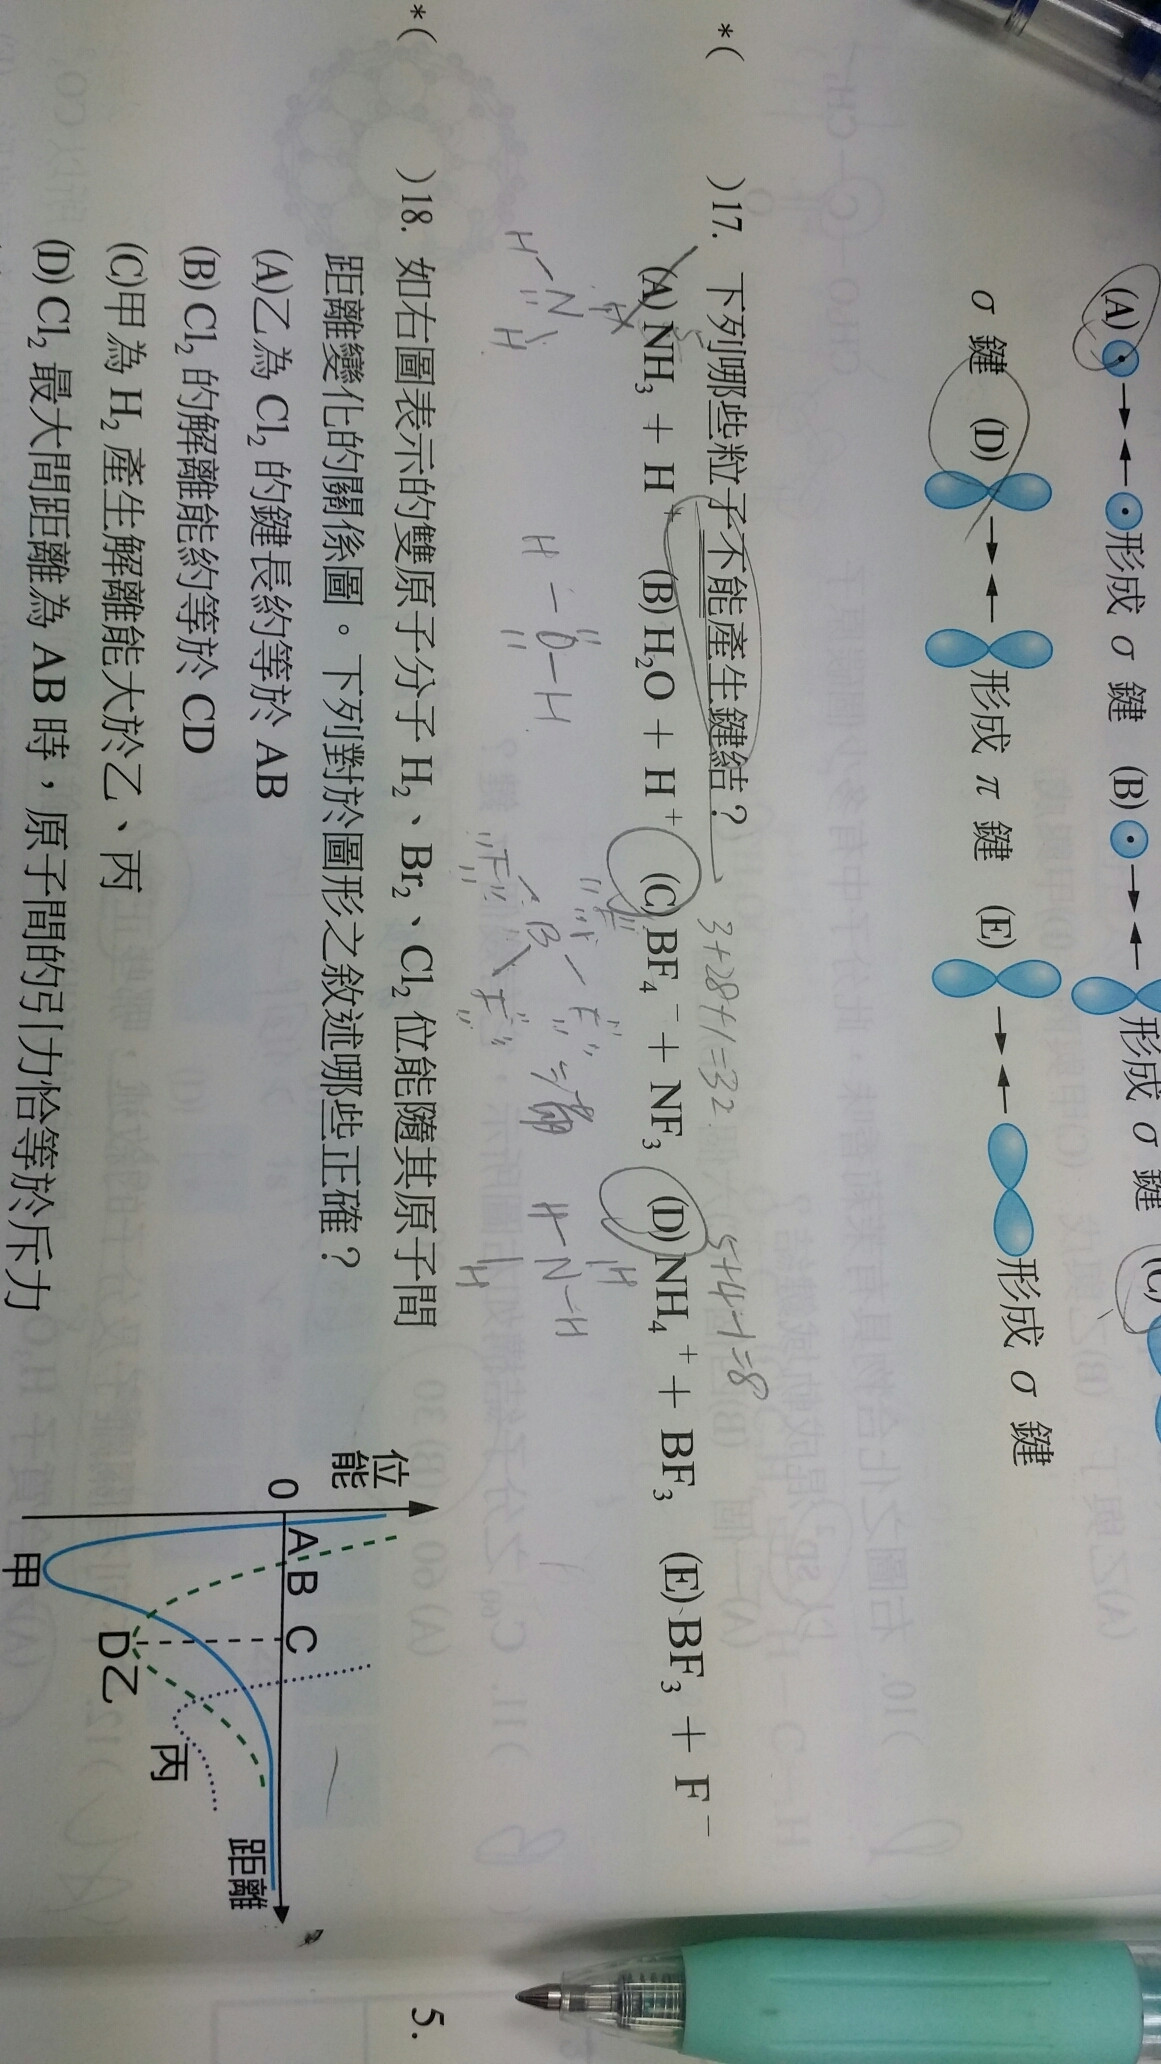 (A) → ← 形成 σ 鍵 (B) → ← 形成 σ 鍵 (C)
σ 鍵 (D) → ← 形成 π 鍵 (E) → ← 形成 σ 鍵
*( )17. 下列哪些粒子不能產生鍵結?
3+28+1=32
5+4-1=8
(A) NH₃ + H⁺ (B) H₂O + H⁺ (C) BF₄⁻ + NF₃ (D) NH₄⁺ + BF₃ (E) BF₃ + F⁻
H
H N H
H-O-H
F
F B F
F
H
H-N-H
H
*( )18. 如右圖表示的雙原子分子 H₂、Br₂、Cl₂ 位能隨其原子間
距離變化的關係圖。下列對於圖形之敘述哪些正確?
(A)乙為 Cl₂ 的鍵長約等於 AB
(B) Cl₂ 的解離能約等於 CD
(C)甲為 H₂ 產生解離能大於乙、丙
(D) Cl₂ 最大間距離為 AB 時,原子間的引力恰等於斥力
位能
0
A B C
D 乙
甲
丙
距離
5.